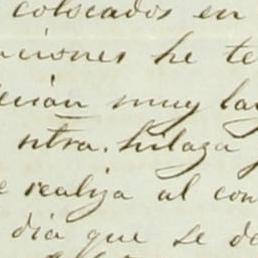 colocados en
ciones he te
ecian muy la
ntra. hilaza
e realiza al con
dia que se de